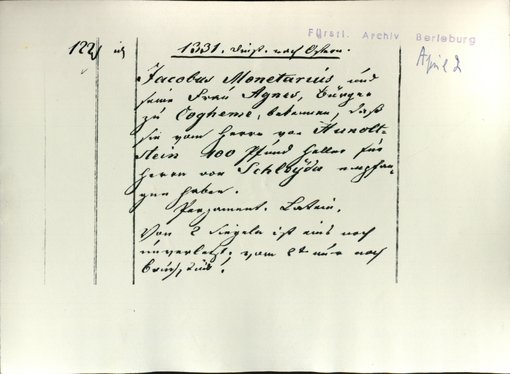 Fürstl. Archiv Berleburg
April 2
122
1331. Dinst. nach Ostern.
Jacobus Monetarius und
seine Frau Agnes, Bürger
zu Cogheme, bekennen, daß
sie vom Herrn von Hunolt-
stein 400 Pfund Heller für
Herrn von Schleyda empfan-
gen haben.
Pergament. Latein.
Von 2 Siegeln ist eins noch
unverletzt, vom 2t nur noch